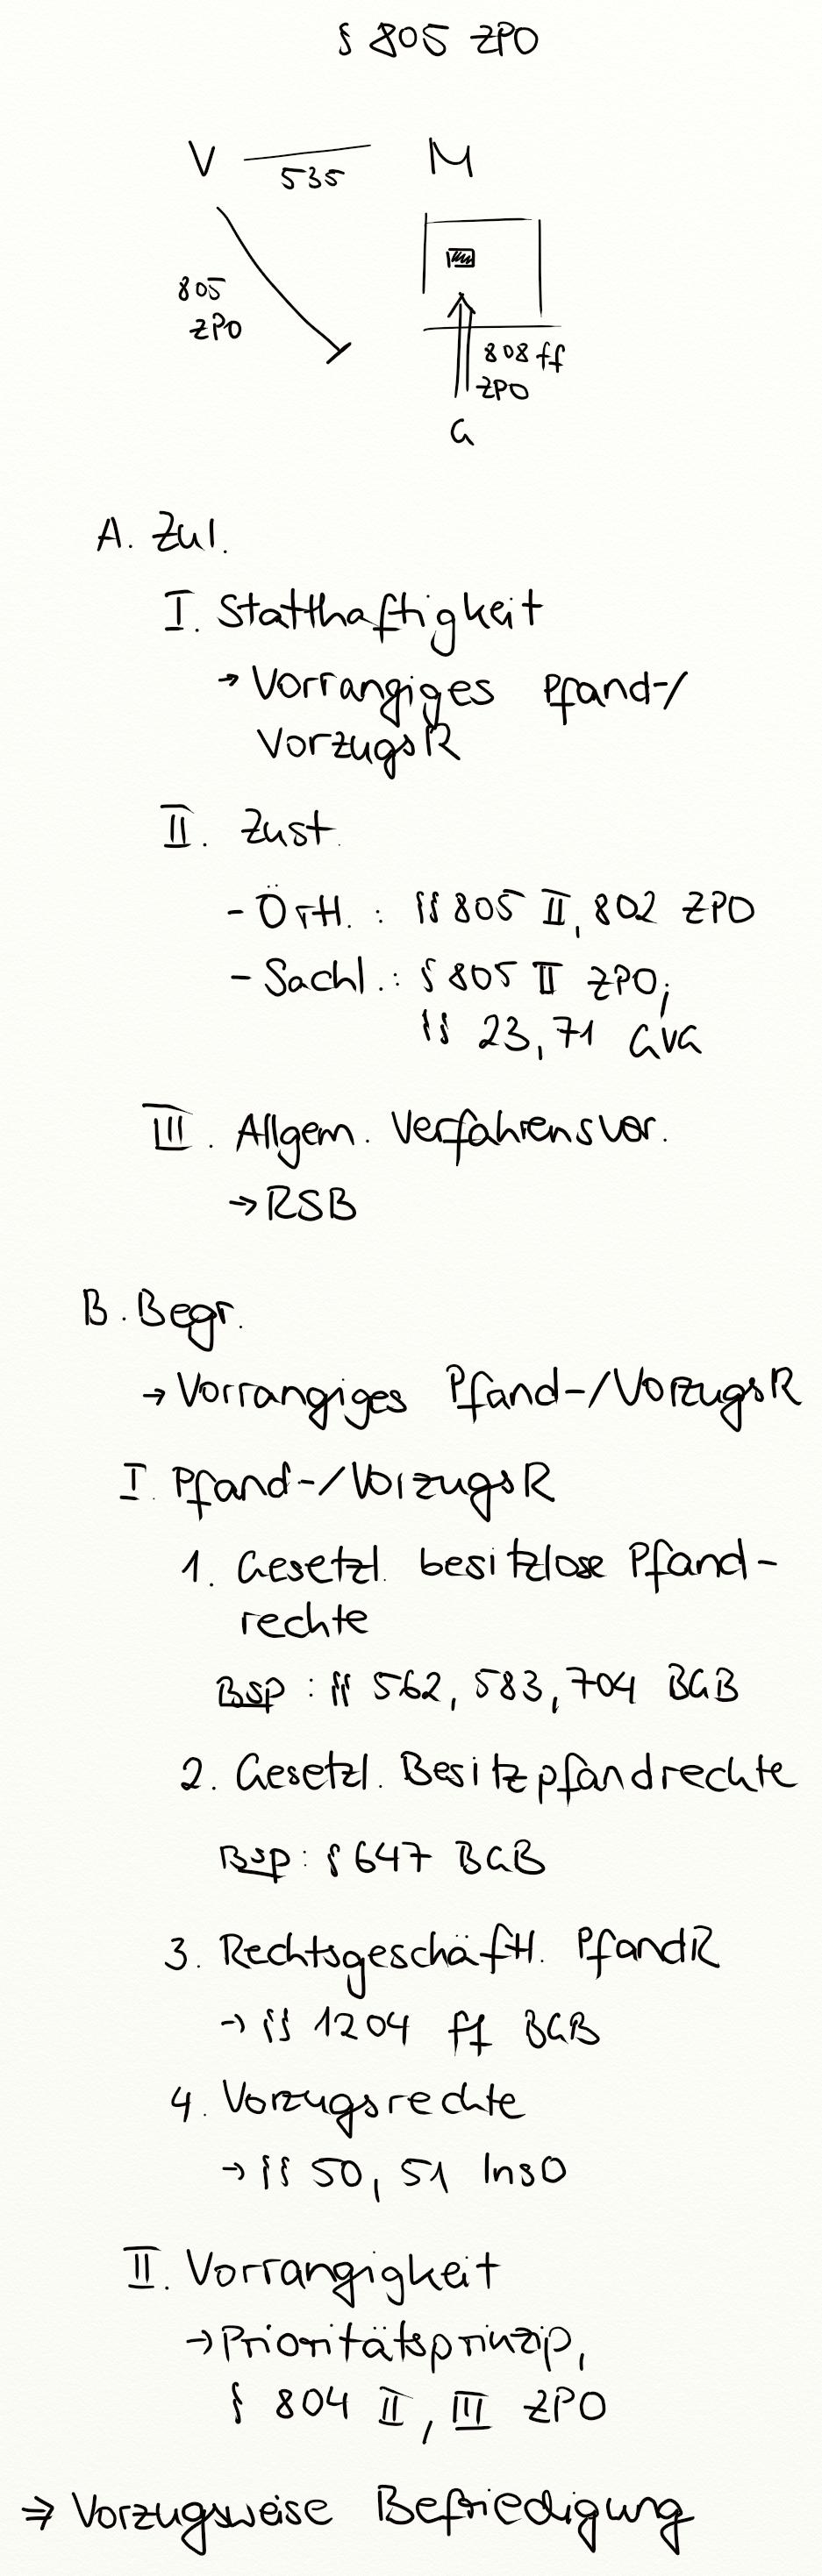 § 805 ZPO
V M
535
805
ZPO
808 ff
ZPO
G
A. Zul.
I. Statthaftigkeit
→ Vorrangiges Pfand-/
VorzugsR
II. Zust.
- Örtl. : §§ 805 II, 802 ZPO
- Sachl.: § 805 II ZPO;
§§ 23, 71 GVG
III. Allgem. Verfahrensvor.
→ RSB
B. Begr.
→ Vorrangiges Pfand-/VorzugsR
I. Pfand-/VorzugsR
1. Gesetzl. besitzlose Pfand-
rechte
Bsp: §§ 562, 583, 704 BGB
2. Gesetzl. Besitzpfandrechte
Bsp: § 647 BGB
3. Rechtsgeschäftl. PfandR
→ §§ 1204 ff BGB
4. Vorzugsrechte
→ §§ 50, 51 InsO
II. Vorrangigkeit
→ Prioritätsprinzip,
§ 804 II, III ZPO
⇒ Vorzugsweise Befriedigung